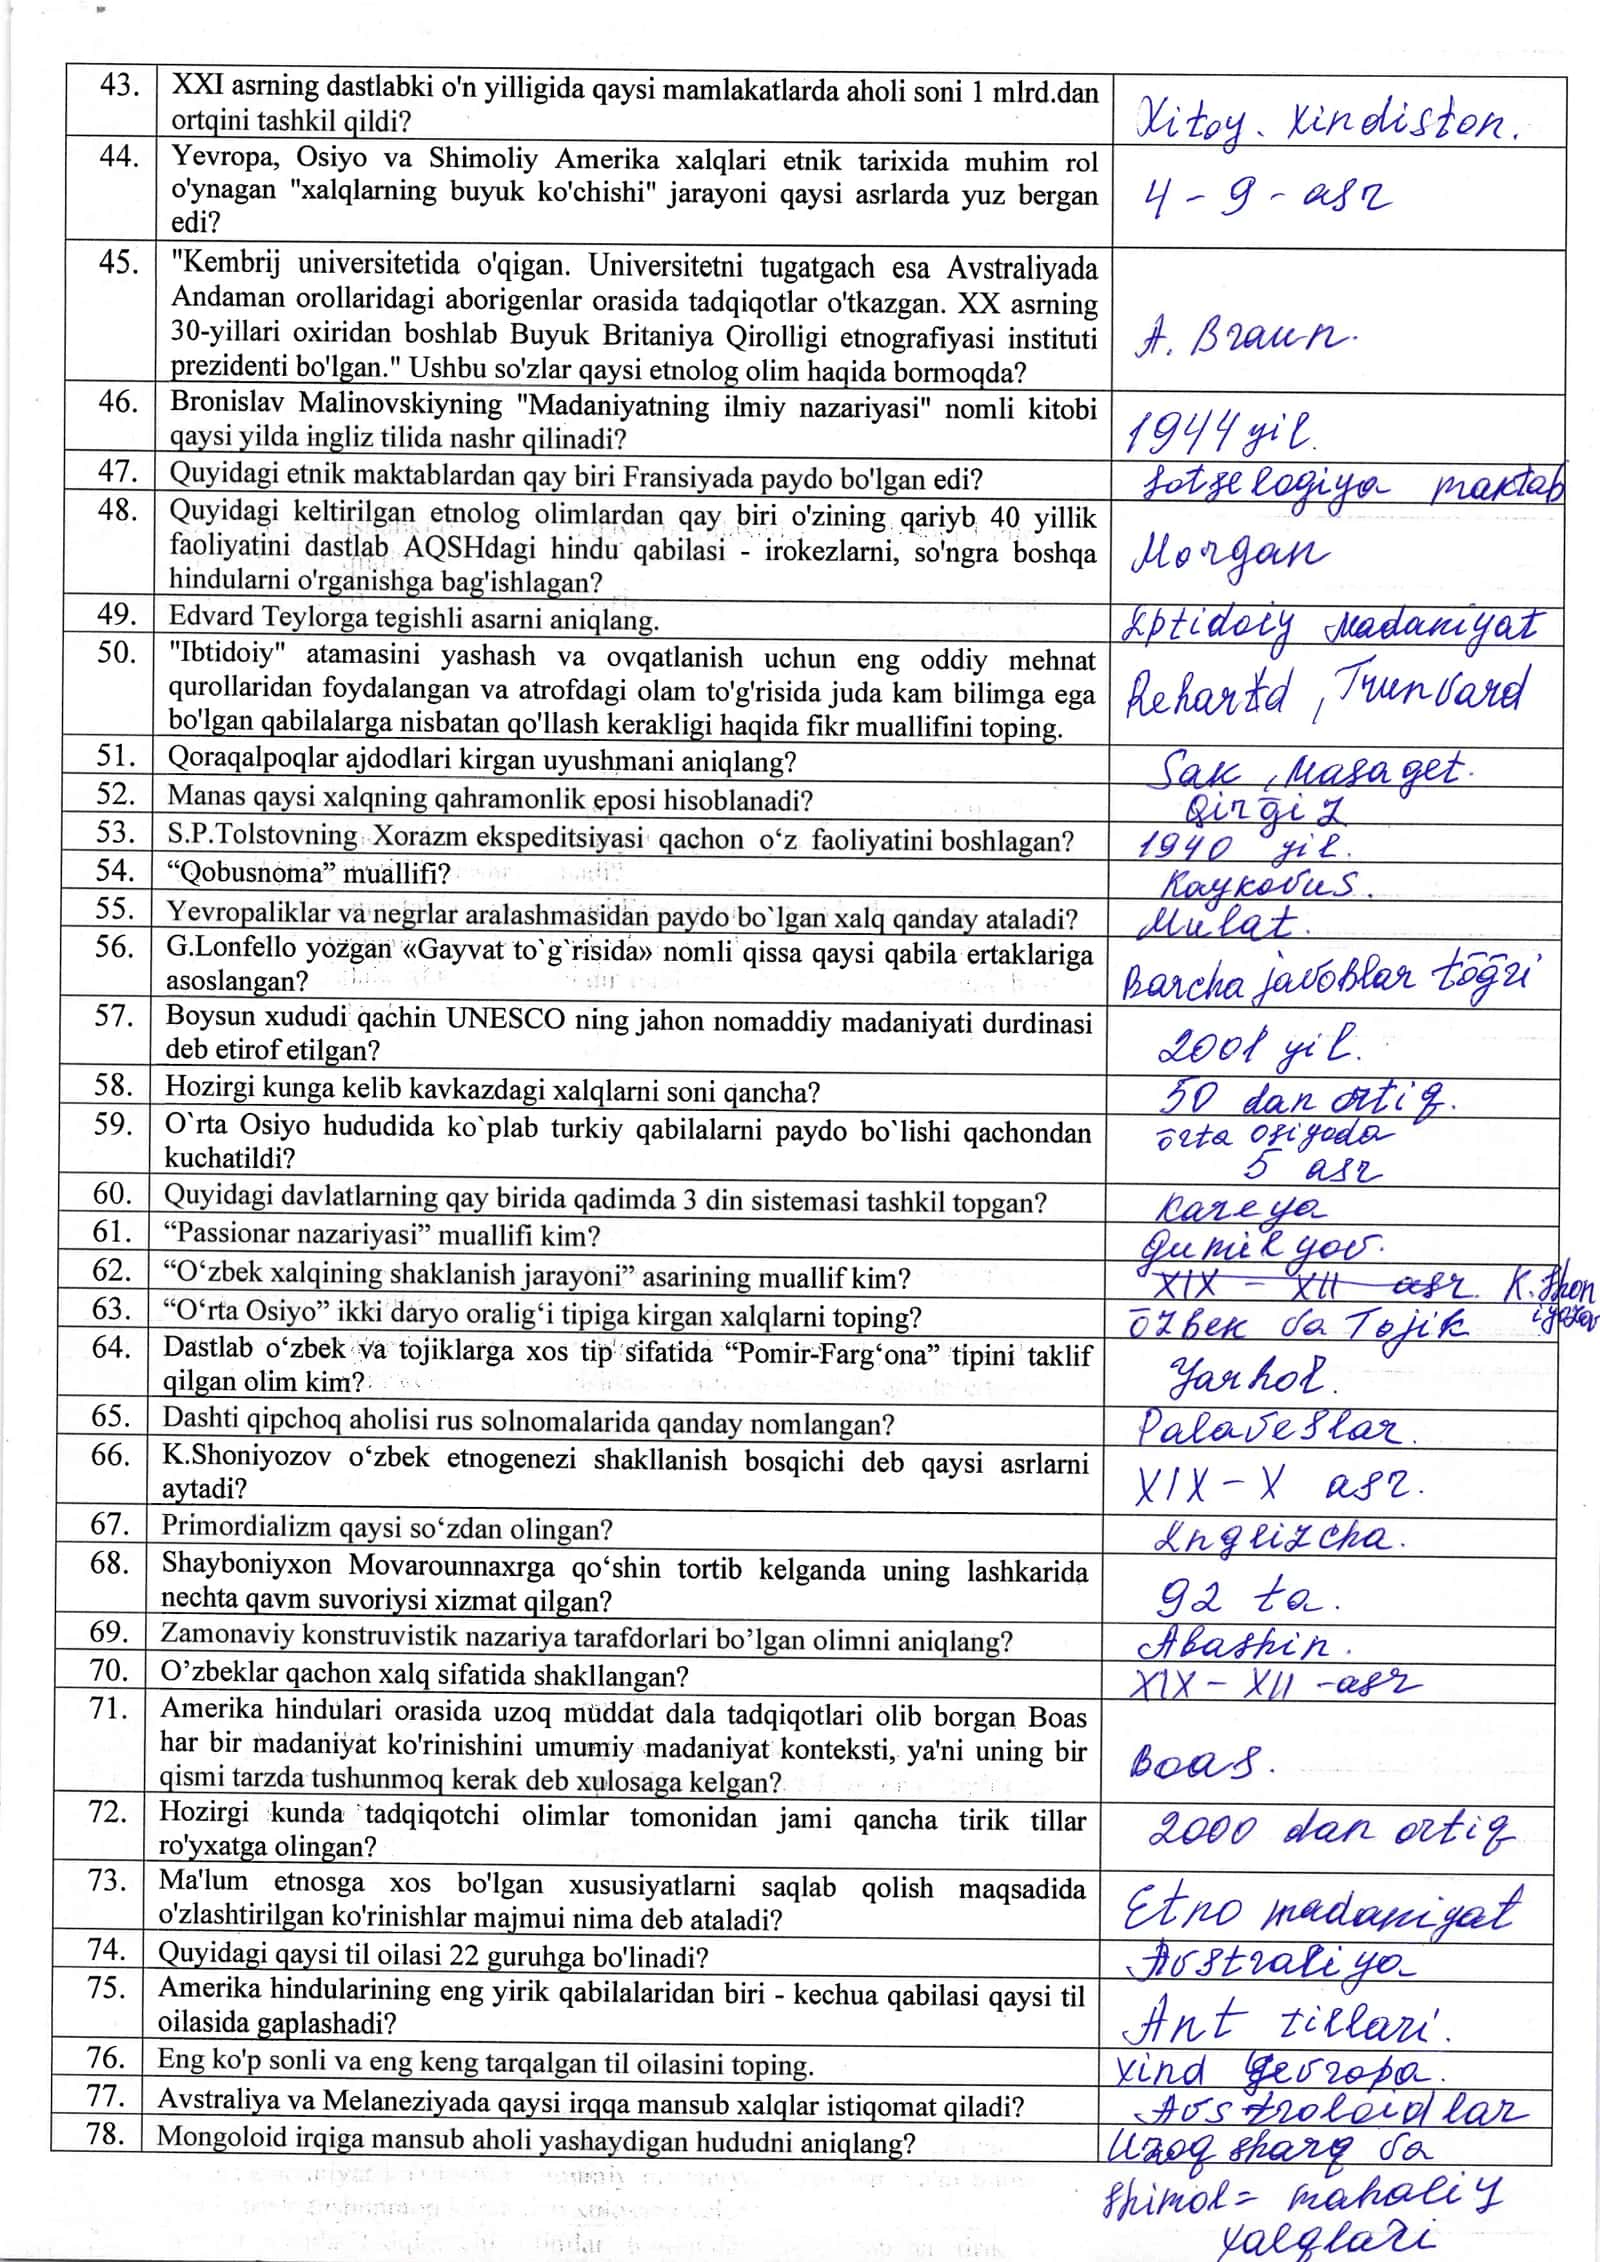 43. XXI asrning dastlabki o'n yilligida qaysi mamlakatlarda aholi soni 1 mlrd.dan
ortqini tashkil qildi?
Xitoy. Xindiston.
44. Yevropa, Osiyo va Shimoliy Amerika xalqlari etnik tarixida muhim rol
o'ynagan "xalqlarning buyuk ko'chishi" jarayoni qaysi asrlarda yuz bergan
edi?
4 - 9 - asr
45. "Kembrij universitetida o'qigan. Universitetni tugatgach esa Avstraliyada
Andaman orollaridagi aborigenlar orasida tadqiqotlar o'tkazgan. XX asrning
30-yillari oxiridan boshlab Buyuk Britaniya Qirolligi etnografiyasi instituti
prezidenti bo'lgan." Ushbu so'zlar qaysi etnolog olim haqida bormoqda?
A. Braun.
46. Bronislav Malinovskiyning "Madaniyatning ilmiy nazariyasi" nomli kitobi
qaysi yilda ingliz tilida nashr qilinadi?
1944 yil.
47. Quyidagi etnik maktablardan qay biri Fransiyada paydo bo'lgan edi?
sotselogiya maktab
48. Quyidagi keltirilgan etnolog olimlardan qay biri o'zining qariyb 40 yillik
faoliyatini dastlab AQSHdagi hindu qabilasi - irokezlarni, so'ngra boshqa
hindularni o'rganishga bag'ishlagan?
Morgan
49. Edvard Teylorga tegishli asarni aniqlang.
Iptidoiy Madaniyat
50. "Ibtidoiy" atamasini yashash va ovqatlanish uchun eng oddiy mehnat
qurollaridan foydalangan va atrofdagi olam to'g'risida juda kam bilimga ega
bo'lgan qabilalarga nisbatan qo'llash kerakligi haqida fikr muallifini toping.
51. Qoraqalpoqlar ajdodlari kirgan uyushmani aniqlang?
Sak, Masaget.
52. Manas qaysi xalqning qahramonlik eposi hisoblanadi?
Qirg̅iz
53. S.P.Tolstovning Xorazm ekspeditsiyasi qachon o‘z faoliyatini boshlagan?
1940 yil.
54. “Qobusnoma” muallifi?
Kaykovus.
55. Yevropaliklar va negrlar aralashmasidan paydo bo`lgan xalq qanday ataladi?
Mulat.
56. G.Lonfello yozgan «Gayvat to`g`risida» nomli qissa qaysi qabila ertaklariga
asoslangan?
Barcha javoblar tōg̅ri
57. Boysun xududi qachin UNESCO ning jahon nomaddiy madaniyati durdinasi
deb etirof etilgan?
2001 yil.
58. Hozirgi kunga kelib kavkazdagi xalqlarni soni qancha?
50 dan ortiq.
59. O`rta Osiyo hududida ko`plab turkiy qabilalarni paydo bo`lishi qachondan
kuchatildi?
ōrta osiyoda
5 asr
60. Quyidagi davlatlarning qay birida qadimda 3 din sistemasi tashkil topgan?
Kareya
61. “Passionar nazariyasi” muallifi kim?
Gumilyov.
62. “O‘zbek xalqining shaklanish jarayoni” asarining muallif kim?
XIX - XII asr. K.Shon
iyozov
63. “O‘rta Osiyo” ikki daryo oralig‘i tipiga kirgan xalqlarni toping?
ōzbek va Tojik
64. Dastlab o‘zbek va tojiklarga xos tip sifatida “Pomir-Farg‘ona” tipini taklif
qilgan olim kim?
Yarhol.
65. Dashti qipchoq aholisi rus solnomalarida qanday nomlangan?
Palaveslar.
66. K.Shoniyozov o‘zbek etnogenezi shakllanish bosqichi deb qaysi asrlarni
aytadi?
XIX - X asr.
67. Primordializm qaysi so‘zdan olingan?
Inglizcha.
68. Shayboniyxon Movarounnaxrga qo‘shin tortib kelganda uning lashkarida
nechta qavm suvoriysi xizmat qilgan?
92 ta.
69. Zamonaviy konstruvistik nazariya tarafdorlari bo’lgan olimni aniqlang?
Abashin.
70. O’zbeklar qachon xalq sifatida shakllangan?
XIX - XII - asr
71. Amerika hindulari orasida uzoq muddat dala tadqiqotlari olib borgan Boas
har bir madaniyat ko'rinishini umumiy madaniyat konteksti, ya'ni uning bir
qismi tarzda tushunmoq kerak deb xulosaga kelgan?
Boas.
72. Hozirgi kunda tadqiqotchi olimlar tomonidan jami qancha tirik tillar
ro'yxatga olingan?
2000 dan ortiq
73. Ma'lum etnosga xos bo'lgan xususiyatlarni saqlab qolish maqsadida
o'zlashtirilgan ko'rinishlar majmui nima deb ataladi?
Etno madaniyat
74. Quyidagi qaysi til oilasi 22 guruhga bo'linadi?
Avstraliya
75. Amerika hindularining eng yirik qabilalaridan biri - kechua qabilasi qaysi til
oilasida gaplashadi?
Ant tillari.
76. Eng ko'p sonli va eng keng tarqalgan til oilasini toping.
Xind yevropa.
77. Avstraliya va Melaneziyada qaysi irqqa mansub xalqlar istiqomat qiladi?
Avstroloidlar
78. Mongoloid irqiga mansub aholi yashaydigan hududni aniqlang?
Uzoq sharq va
shimol = mahaliy
xalqlari